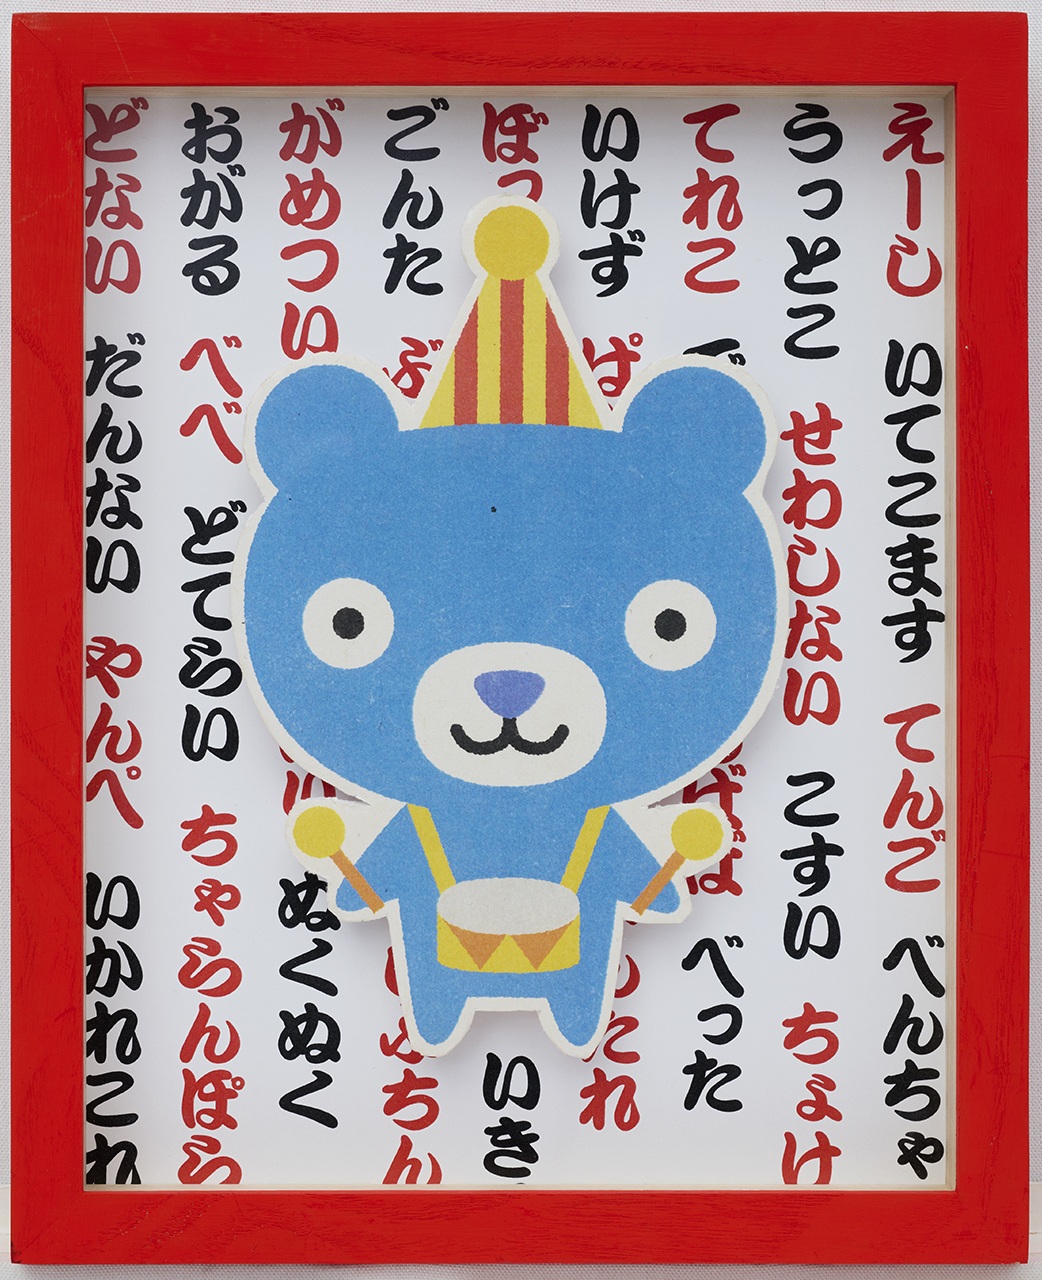 えーし いてこます てんご べんちゃ
うっとこ せわしない こすい ちょけ
てれこ べった
いけず
ぼっ いき
ごんた
がめつい ぬくぬく
おがる べべ どてらい ちゃらんぽら
どない だんない やんぺ いかれこれ